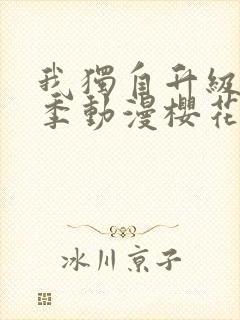 我獨自升級
季動漫櫻花
冰川京子